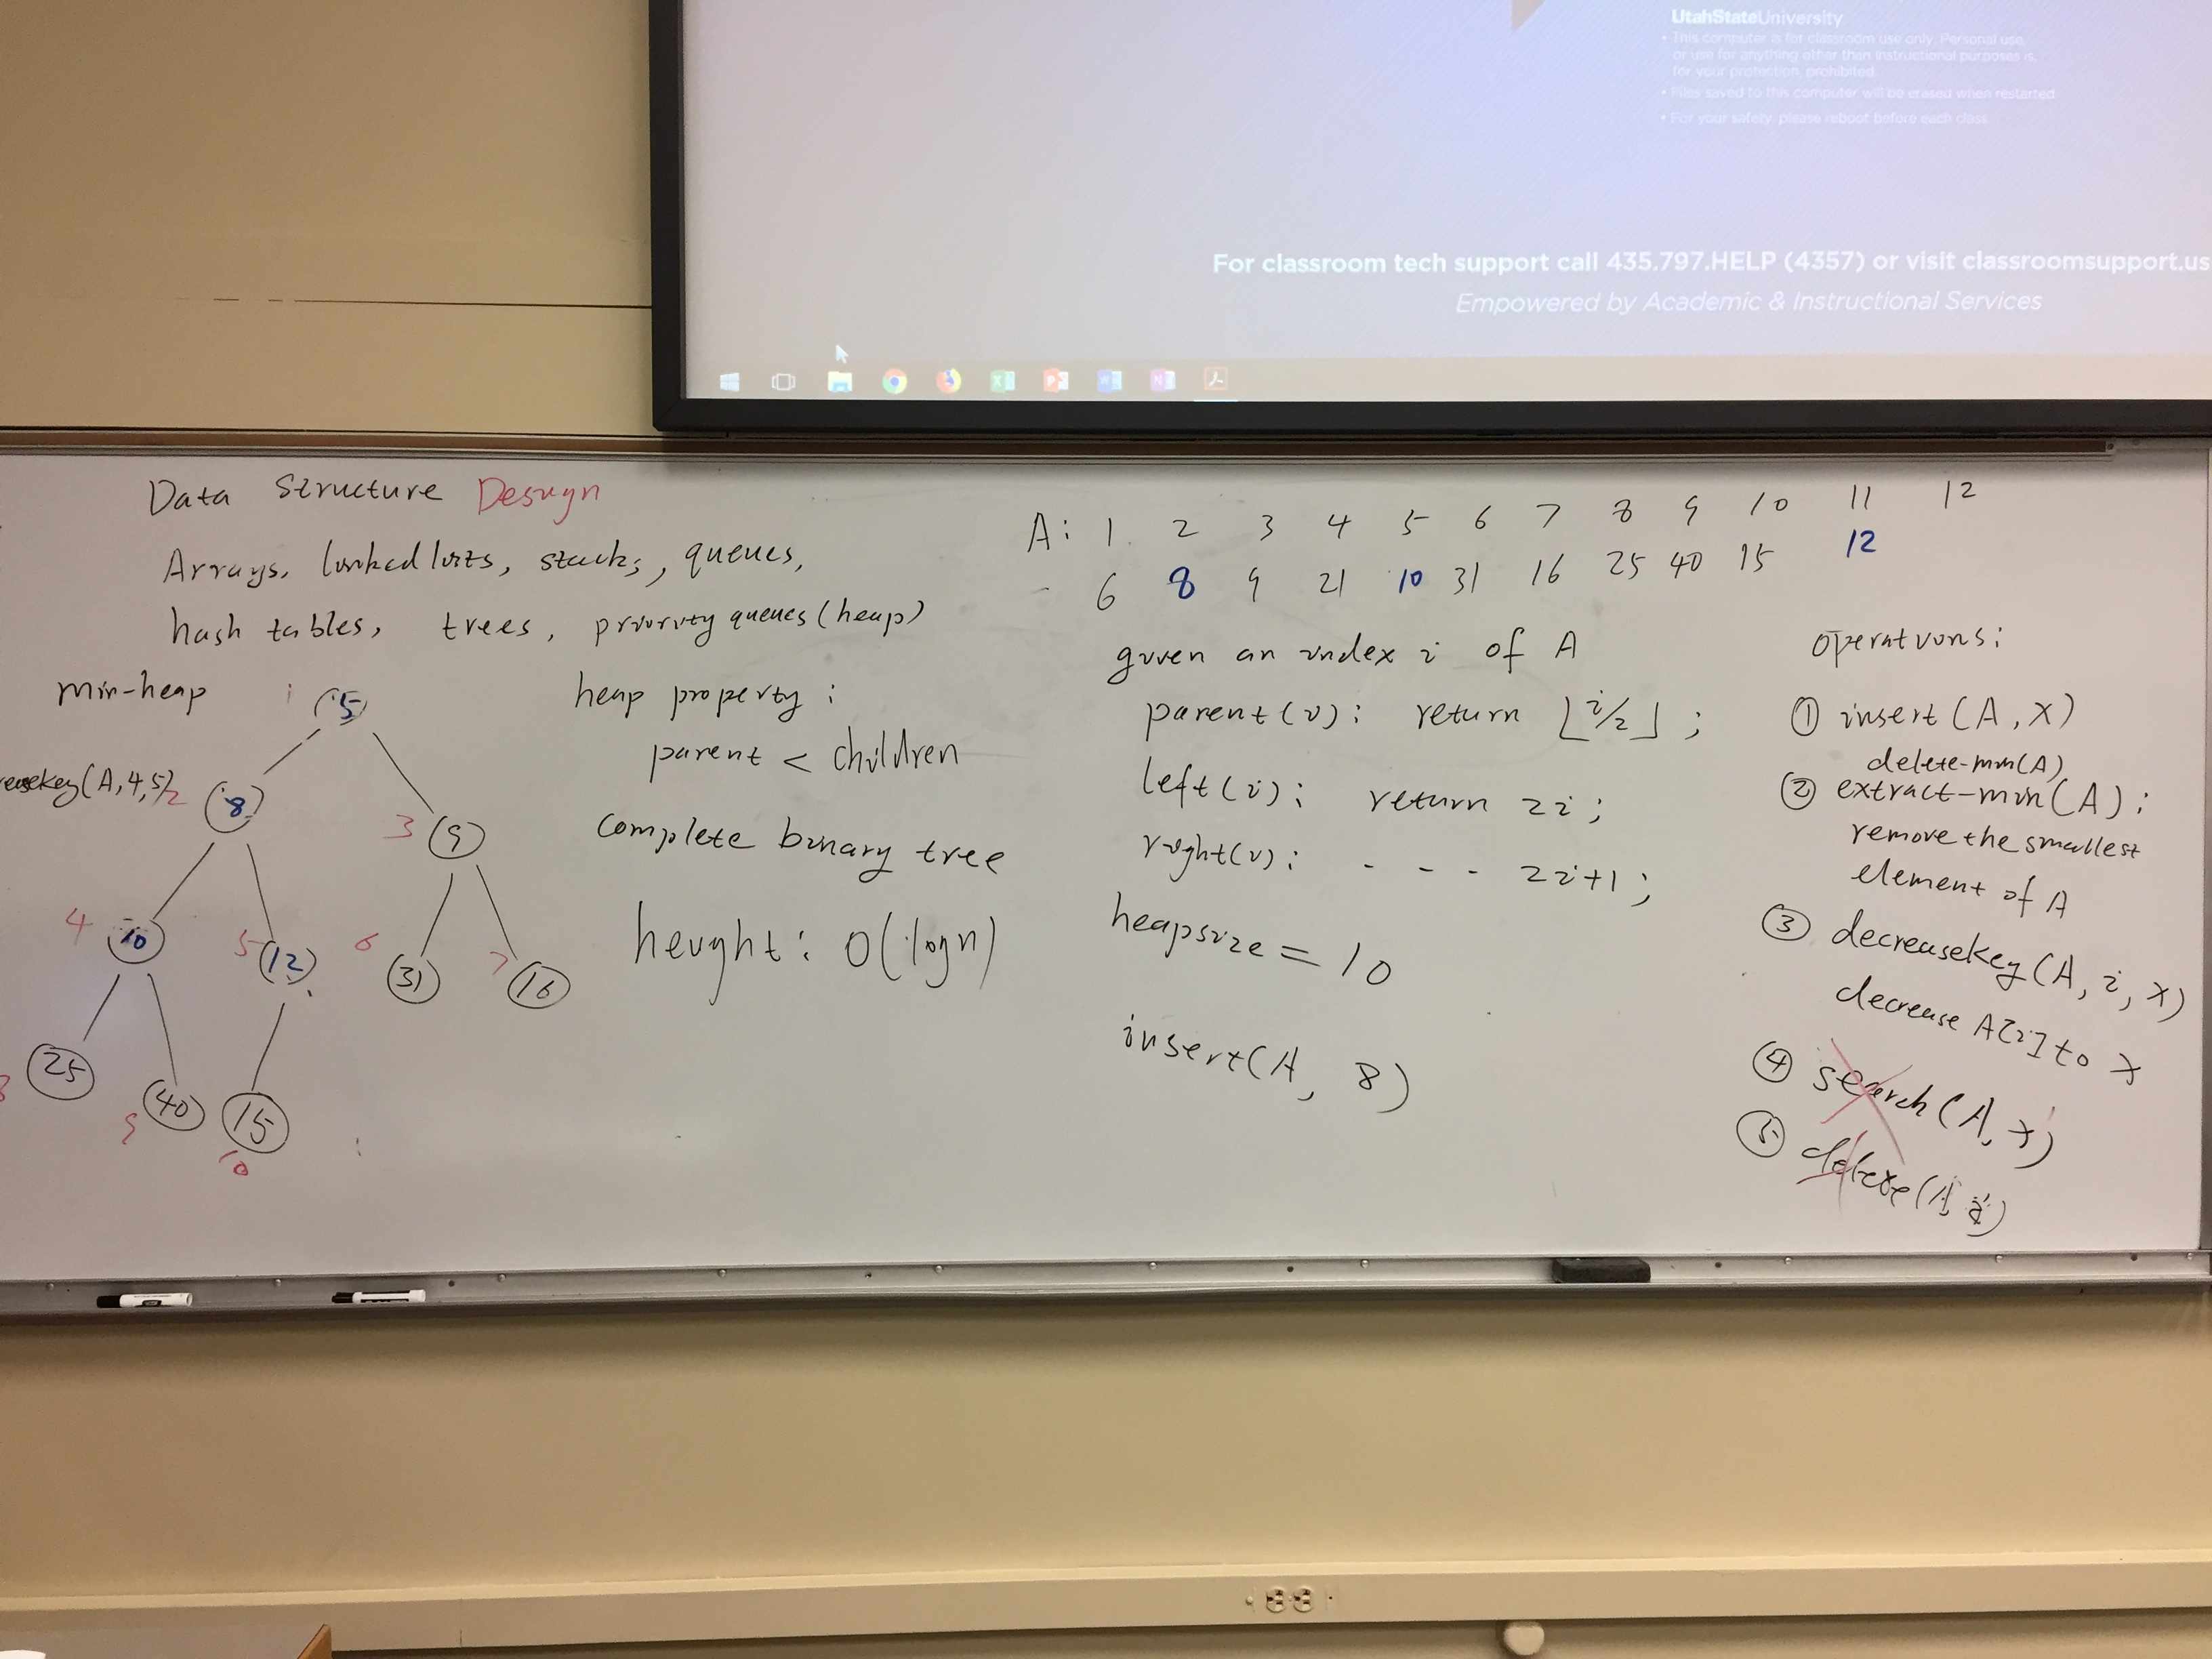 UtahStateUniversity
• This computer is for classroom use only. Personal use,
or use for anything other than instructional purposes is,
for your protection, prohibited.
• Files saved to this computer will be erased when restarted
• For your safety, please reboot before each class.
For classroom tech support call 435.797.HELP (4357) or visit classroomsupport.us
Empowered by Academic & Instructional Services
Data Structure Design
Arrays, linked lists, stacks, queues,
hash tables, trees, priority queues (heap)
min-heap
5
decreasekey(A,4,5)
2 8
3 9
4 10
5 12
6 31
7 16
8 25
9 40
10 15
heap property:
parent < children
complete binary tree
height: O(log n)
A: 1 2 3 4 5 6 7 8 9 10 11 12
6 8 9 21 10 31 16 25 40 15 12
given an index i of A
parent(i): return ⌊i/2⌋;
left(i): return 2i;
right(i): - - - 2i+1;
heapsize = 10
insert(A, 8)
operations:
① insert(A, x)
delete-min(A)
② extract-min(A):
remove the smallest
element of A
③ decreasekey(A, i, x)
decrease A[i] to x
④ search(A, x)
⑤ delete(A, i)